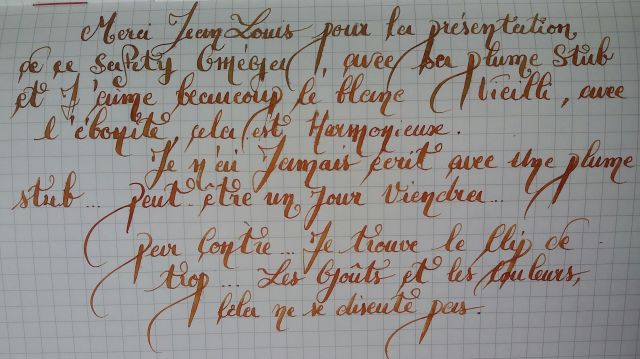 Merci Jean Louis pour la présentation
de ce Safety Oméga, avec sa plume Stub
et J'aime beaucoup le blanc Vieilli, avec
l'ébonite, cela est Harmonieux.
Je n'ai Jamais écrit avec une plume
stub... peut être un Jour Viendra...
par Contre... Je trouve le Clip de
trop... Les Goûts et les Couleurs,
Cela ne se discute pas.